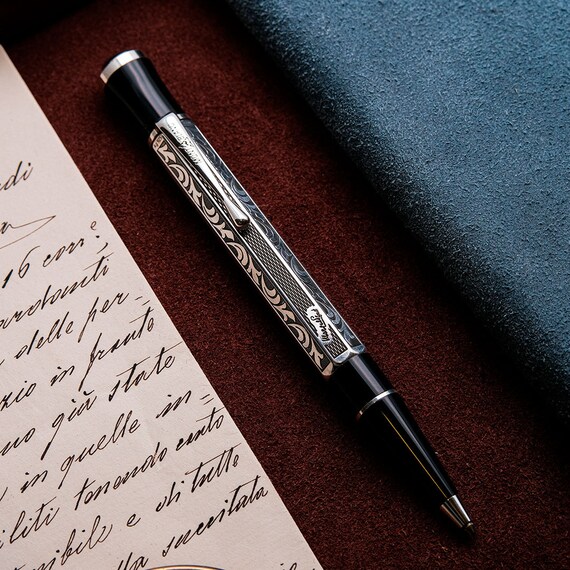 di
16 corr:
delle per=
zio in fronte
no già state
in quelle in=
iliti tenendo conto
nibile e di tutte
lla suscitata